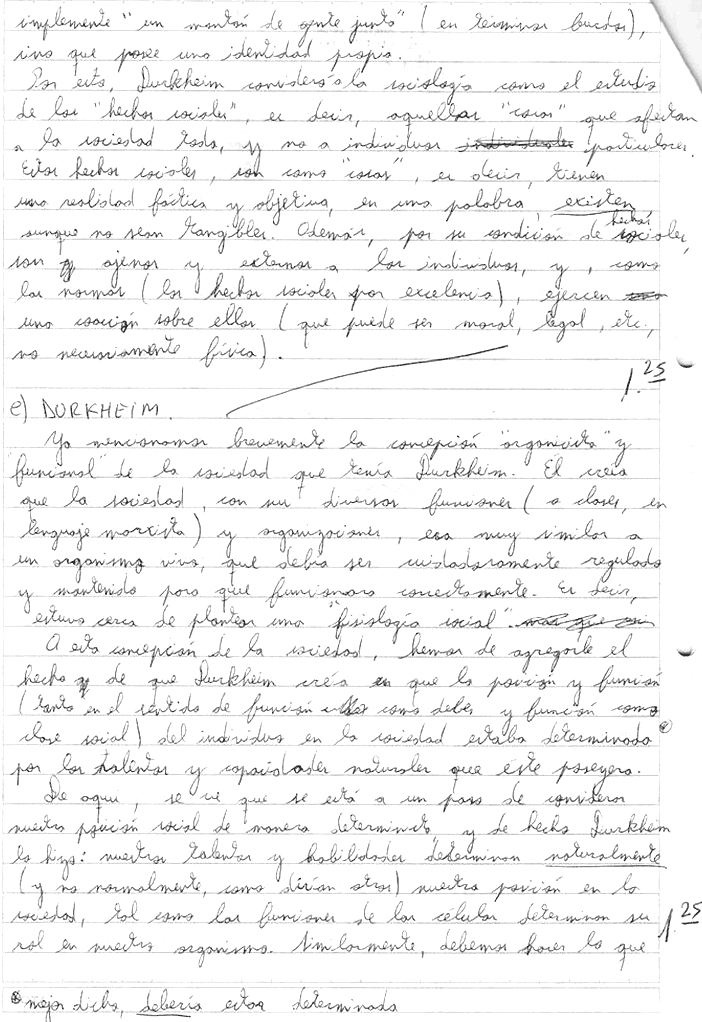 implemente "un montón de gente junta" (en términos burdos),
ino que posee una identidad propia.
Por esto, Durkheim consideró a la sociología como el estudio
de los "hechos sociales", es decir, aquellas "cosas" que afectan
a la sociedad toda, y no a individuos particulares.
Estos hechos sociales, son como "cosas", es decir, tienen
una realidad fáctica y objetiva, en una palabra, existen
aunque no sean tangibles. Además, por su condición de hechos sociales,
son ajenos y externos a los individuos, y, como
las normas (los hechos sociales por excelencia), ejercen
una coacción sobre ellos (que puede ser moral, legal, etc.,
no necesariamente física).
1.25
e) DURKHEIM.
Ya mencionamos brevemente la concepción "organicista" y
funcional" de la sociedad que tenía Durkheim. Él creía
que la sociedad, con sus diversas funciones (o clases, en
lenguaje marxista) y organizaciones, era muy similar a
un organismo vivo, que debía ser cuidadosamente regulado
y mantenido para que funcionara correctamente. Es decir,
estuvo cerca de plantear una "fisiología social".
A esta concepción de la sociedad, hemos de agregarle el
hecho de que Durkheim creía que la posición y función
(tanto en el sentido de función como deber y función como
clase social) del individuo en la sociedad estaba determinada
por los talentos y capacidades naturales que este poseyera.
De aquí, se ve que se está a un paso de considerar
nuestra posición social de manera determinista, y de hecho Durkheim
lo hizo: nuestros talentos y habilidades determinan naturalmente
(y no normalmente, como dirían otros) nuestra posición en la
sociedad, tal como las funciones de las células determinan su
1.25
rol en nuestro organismo. Similarmente, debemos hacer lo que
mejor dicho, debería estar determinada